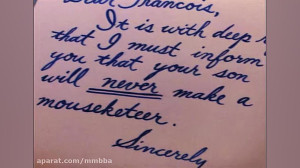 Dear Francois,
It is with deep
that I must inform
you that your son
will never make a
mouseketeer.
Sincerely
aparat.com/mmbba